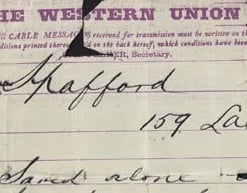 HE WESTERN UNION
CABLE MESSAG received for transmission must be written on the
ditions printed on the back hereof, which conditions have been
ER, Secretary.
Spafford
159 La
Saved alone